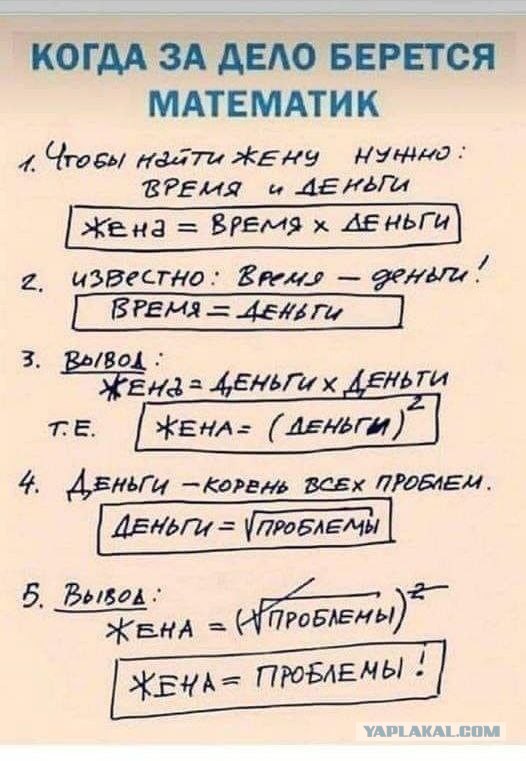 КОГДА ЗА ДЕЛО БЕРЕТСЯ
МАТЕМАТИК
1. Чтобы найти жену нужно:
ВРЕМЯ и ДЕНЬГИ
Жена = ВРЕМЯ х ДЕНЬГИ
2. известно: Время – деньги!
ВРЕМЯ = ДЕНЬГИ
3. Вывод:
ЖЕНа = ДЕНЬГИ х ДЕНЬГИ
Т.Е. ЖЕНА = (ДЕНЬГИ)²
4. ДЕНЬГИ – КОРЕНЬ ВСЕХ ПРОБЛЕМ.
ДЕНЬГИ = √ПРОБЛЕМЫ
5. Вывод:
ЖЕНА = (√ПРОБЛЕМЫ)²
ЖЕНА = ПРОБЛЕМЫ!
YAPLAKAL.COM